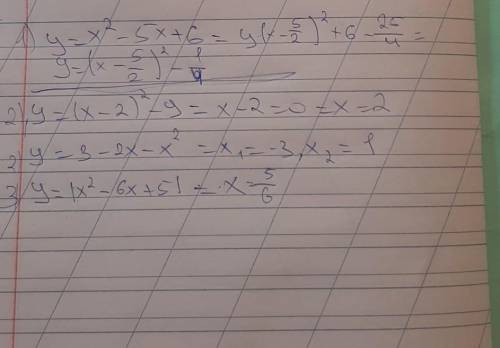 1) y = x² - 5x + 6 = y(x - 5/2)² + 6 - 25/4 =
y = (x - 5/2)² - 1/4
2) y = (x - 2)² - 9 = x - 2 = 0 = x = 2
2) y = 3 - 2x - x² = x₁ = -3, x₂ = 1
3) y = |x² - 6x + 5| = x = 5/6